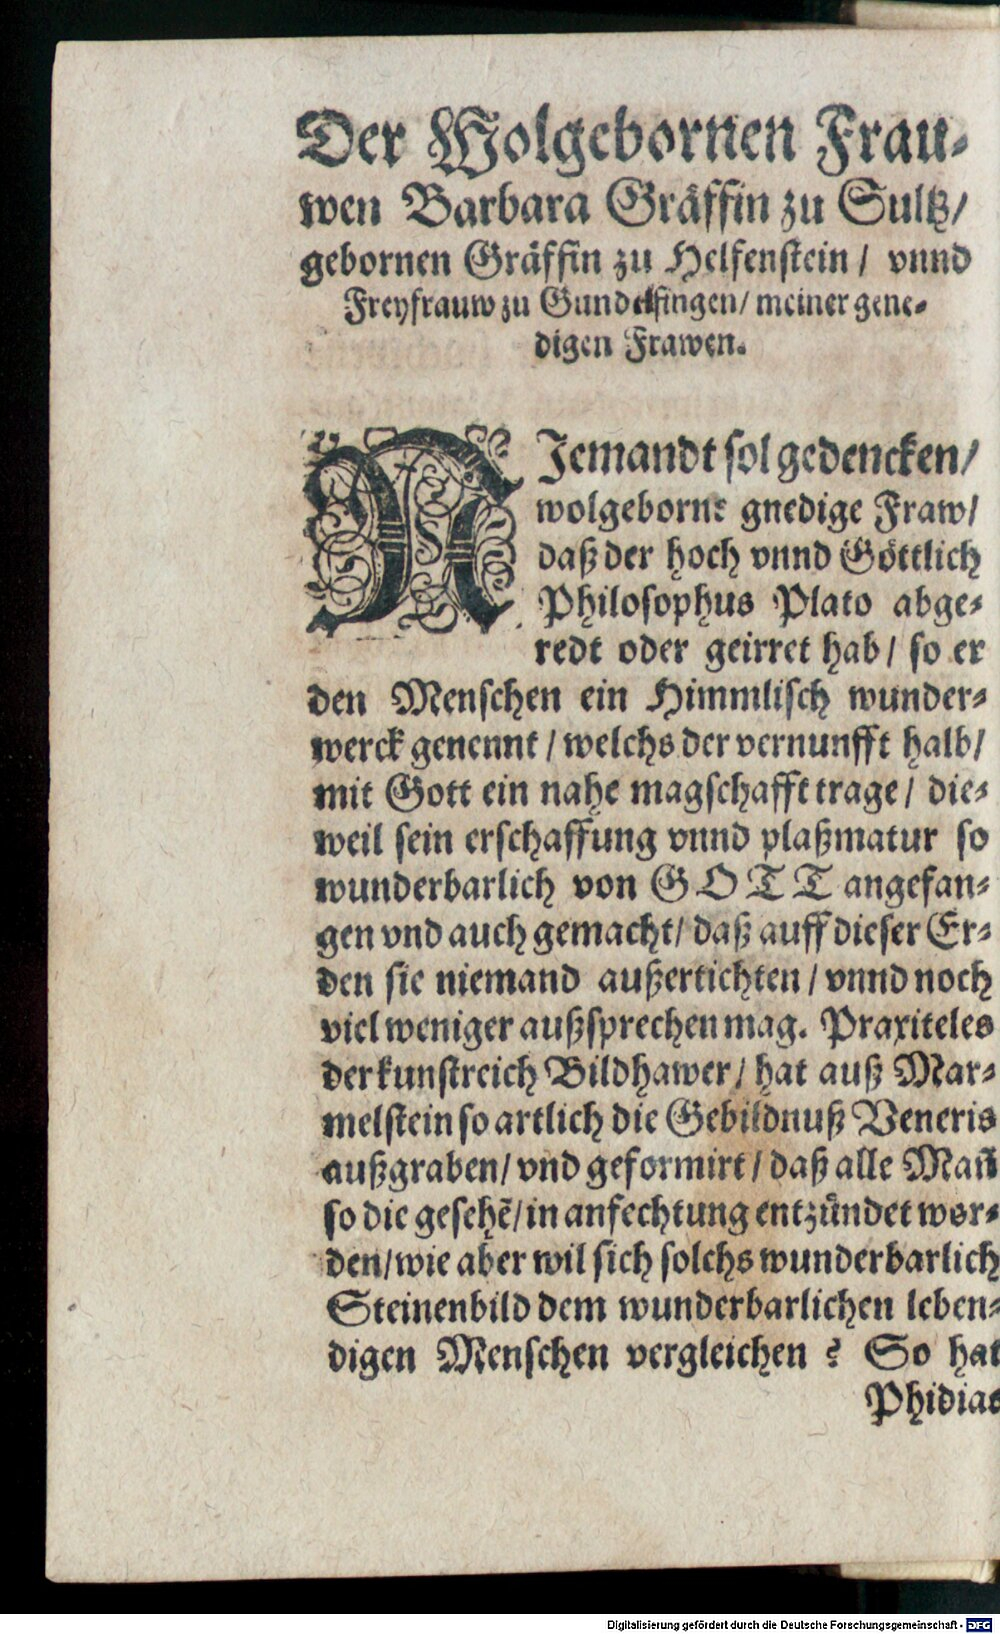 Der Wolgebornen Frau⸗
wen Barbara Gräffin zu Sultz/
gebornen Gräffin zu Helfenstein / vnnd
Freyfrauw zu Gundelfingen/ meiner gene⸗
digen Frawen.
NJemandt sol gedencken/
wolgeborne gnedige Fraw/
daß der hoch vnnd Göttlich
Philosophus Plato abge⸗
redt oder geirret hab / so er
den Menschen ein Himmlisch wunder⸗
werck genennt / welchs der vernunfft halb/
mit Gott ein nahe magschafft trage / die⸗
weil sein erschaffung vnnd plaßmatur so
wunderbarlich von GOTT angefan⸗
gen vnd auch gemacht/ daß auff dieser Er⸗
den sie niemand außertichten / vnnd noch
viel weniger außsprechen mag. Praxiteles
der kunstreich Bildhawer/ hat auß Mar⸗
melstein so artlich die Gebildnuß Veneris
außgraben/ vnd geformirt / daß alle Mañ
so die gesehẽ/ in anfechtung entzündet wor⸗
den/ wie aber wil sich solchs wunderbarlich
Steinenbild dem wunderbarlichen leben⸗
digen Menschen vergleichen ? So hat
Phidias
Digitalisierung gefördert durch die Deutsche Forschungsgemeinschaft - DFG